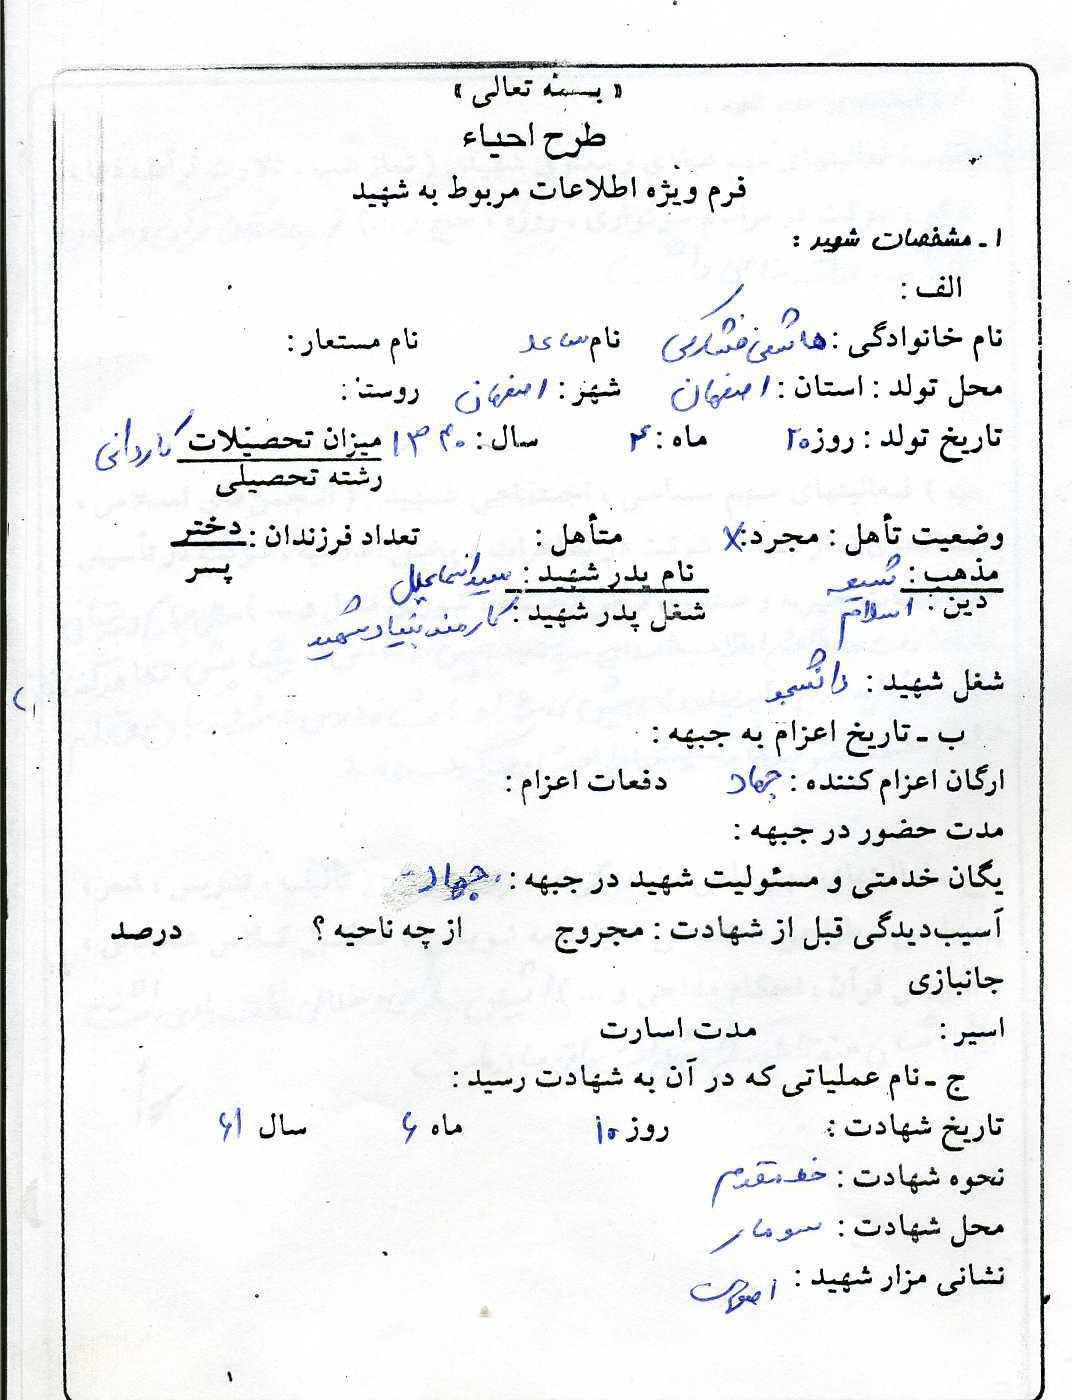 « بسمه تعالی »
طرح احیاء
فرم ویژه اطلاعات مربوط به شهید
۱ ـ مشخصات شهید :
الف :
نام خانوادگی : هاشمی فشارکی نام ساعد نام مستعار :
محل تولد : استان : اصفهان شهر : اصفهان روستا :
تاریخ تولد : روز ۲۰ ماه : ۴ سال : ۱۳۴۰ میزان تحصیلات کاردانی
رشته تحصیلی
وضعیت تأهل : مجرد : X متأهل : تعداد فرزندان : دختر
پسر
مذهب : شیعه نام پدر شهید : سید اسماعیل
دین : اسلام شغل پدر شهید : کارمند بنیاد شهید
شغل شهید : دانشجو
ب ـ تاریخ اعزام به جبهه :
ارگان اعزام کننده : جهاد دفعات اعزام :
مدت حضور در جبهه :
یگان خدمتی و مسئولیت شهید در جبهه : جهاد
آسیب‌دیدگی قبل از شهادت : مجروح از چه ناحیه ؟ درصد
جانبازی
اسیر : مدت اسارت
ج ـ نام عملیاتی که در آن به شهادت رسید :
تاریخ شهادت : روز ۱۰ ماه ۶ سال ۶۱
نحوه شهادت : خط مقدم
محل شهادت : سومار
نشانی مزار شهید : اصفهان
۱